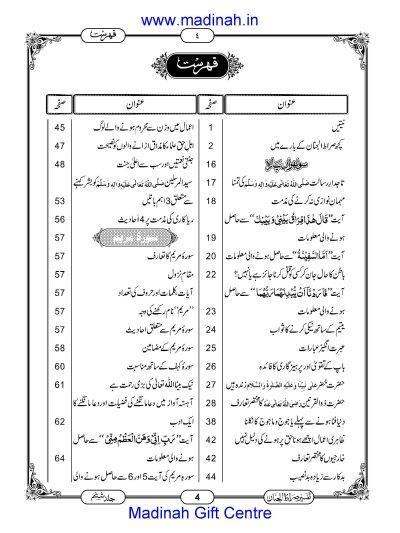 www.madinah.in
فہرست
٤
فہرست
صفحہ
عنوان
صفحہ
عنوان
1
نیتیں
2
کچھ صراط الجنان کے بارے میں
16
17
تاجدارِ رسالت صَلَّی اللہُ تَعَالٰی عَلَیْہِ وَاٰلِہٖ وَسَلَّم کی تمنا
18
مہمان نوازی نہ کرنے کی مذمت
آیت "قَالَ هٰذَا فِرَاقُ بَیْنِیْ وَبَیْنِكَ" سے حاصل
19
ہونے والی معلومات
20
آیت "اَمَّا السَّفِیْنَةُ" سے حاصل ہونے والی معلومات
22
باطن کا حال جان کر کسی کو قتل کرنا جائز ہے یا نہیں؟
آیت "فَاَرَدْنَاۤ اَنْ یُّبْدِلَهُمَا رَبُّهُمَا" سے حاصل
23
ہونے والی معلومات
24
یتیم کے ساتھ نیکی کرنے کا ثواب
25
عبرت انگیز عبارات
26
باپ کے تقویٰ اور پرہیزگاری کا فائدہ
27
حضرت خضر عَلٰی نَبِیِّنَا وَعَلَیْہِ الصَّلٰوۃُ وَالسَّلَام زندہ ہیں
28
حضرت ذوالقرنین رَضِیَ اللہُ تَعَالٰی عَنْہُ کا مختصر تعارف
38
دنیا فنا ہونے سے پہلے یاجوج و ماجوج کا نکلنا
42
ظاہری اعمال اچھے ہونا حق پر ہونے کی دلیل نہیں
42
خارجیوں کا مختصر تعارف
44
بدکار سے زیادہ بدنصیب
45
اعمال میں وزن سے محروم ہونے والے لوگ
47
اہلِ حق علما کا مذاق اڑانے والوں کو نصیحت
48
جنتی نعمتیں اور سب سے اعلیٰ جنت
سید المرسلین صَلَّی اللہُ تَعَالٰی عَلَیْہِ وَاٰلِہٖ وَسَلَّم کو بشر کہنے
53
سے متعلق 3 اہم باتیں
56
ریاکاری کی مذمت پر 4 احادیث
57
سورۂ مریم
57
سورۂ مریم کا تعارف
57
مقامِ نزول
57
آیات، کلمات اور حروف کی تعداد
57
"مریم" نام رکھنے کی وجہ
57
سورۂ مریم سے متعلق احادیث
58
سورۂ مریم کے مضامین
60
سورۂ کہف کے ساتھ مناسبت
61
نیک بیٹا اللہ تعالیٰ کی بڑی رحمت ہے
آہستہ آواز میں دعا مانگنے کی فضیلت اور دعا مانگنے کا
62
ایک ادب
آیت "رَبِّ اِنِّیْ وَهَنَ الْعَظْمُ مِنِّیْ" سے حاصل
64
ہونے والی معلومات
سورۂ مریم کی آیت 5 اور 6 سے حاصل ہونے والی
جلد ششم
4
تفسیر صراط الجنان
Madinah Gift Centre